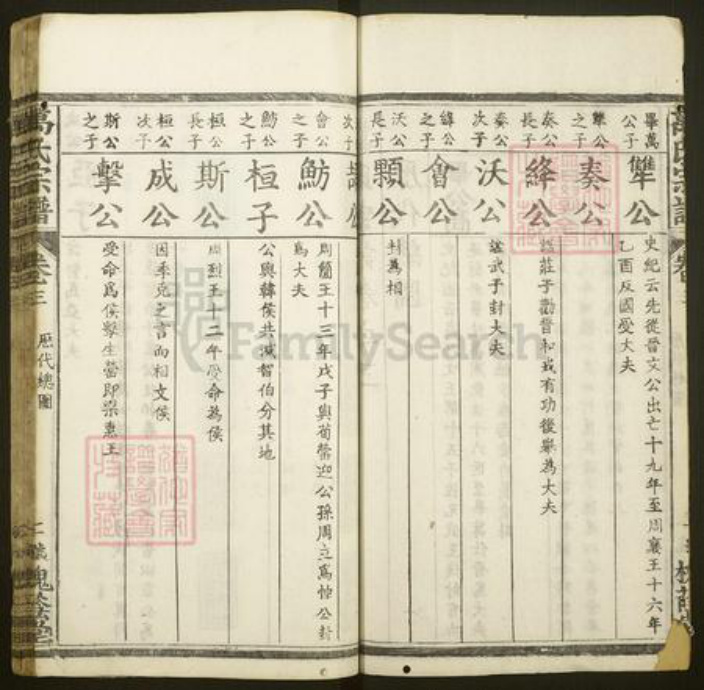 畢萬公子
犨公
史紀云先從晉文公出亡十九年至周襄王十六年
乙酉反國受大夫
犨公之子
奏公
奏公長子
絳公
諡莊子勸晉和戎有功後舉為大夫
奏公次子
沃公
諡武子封大夫
絳公之子
會公
沃公長子
顆公
封為相
會公之子
魴公
周簡王十三年戊子與荀罃迎公孫周立為悼公封
為大夫
魴公之子
桓子
公與韓侯共滅智伯分其地
桓公長子
斯公
周烈王十二年受命為侯
桓公次子
成公
因季克之言而相文侯
斯公之子
擊公
受命為侯擊生罃即梁惠王
萬氏宗譜
卷之三
歷代總圖
槐蔭堂
FamilySearch